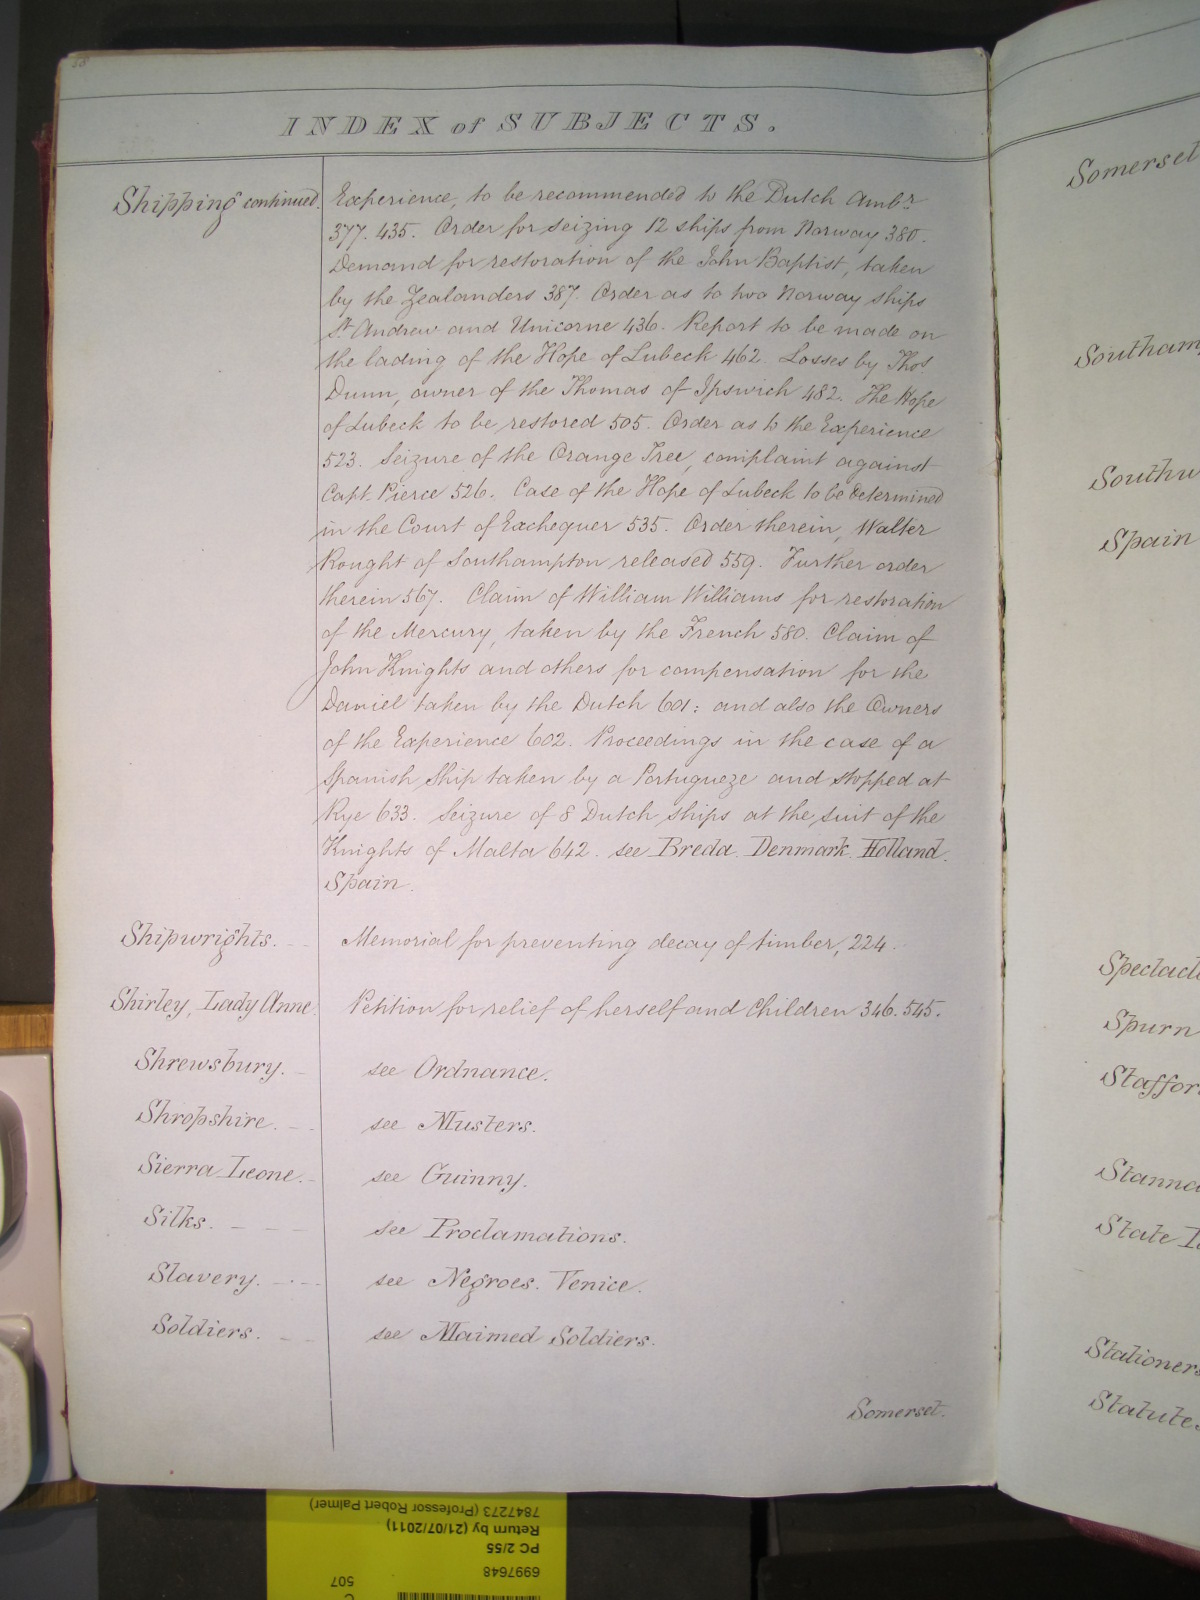 58
INDEX of SUBJECTS.
Shipping continued. Experience, to be recommended to the Dutch Ambr
377. 435. Order for seizing 12 ships from Norway 380.
Demand for restoration of the John Baptist, taken
by the Zealanders 387. Order as to two Norway ships
St Andrew and Unicorne 436. Report to be made on
the lading of the Hope of Lubeck 462. Losses by Thos
Dunn, owner of the Thomas of Ipswich 482. The Hope
of Lubeck to be restored 505. Order as to the Experience
523. Seizure of the Orange Tree, complaint against
Capt. Pierce 526. Case of the Hope of Lubeck to be determined
in the Court of Exchequer 535. Order therein, Walter
Rought of Southampton released 559. Further order
therein 567. Claim of William Williams for restoration
of the Mercury, taken by the French 580. Claim of
John Knights and others for compensation for the
Daniel taken by the Dutch 601: and also the Owners
of the Experience 602. Proceedings in the case of a
Spanish Ship taken by a Portugueze and stopped at
Rye 633. Seizure of 8 Dutch ships at the suit of the
Knights of Malta 642. see Breda. Denmark. Holland.
Spain.
Shipwrights. -- Memorial for preventing decay of timber, 224.
Shirley, Lady Anne. Petition for relief of herself and Children 346. 545.
Shrewsbury. - see Ordnance.
Shropshire. -- see Musters.
Sierra Leone. - see Guinny.
Silks. --- see Proclamations.
Slavery. --- see Negroes. Venice.
Soldiers. -- see Maimed Soldiers.
Somerset.
Somerset
Southam
Southw
Spain
Spectacl
Spurn
Staffor
Stanna
State
Stationers
Statutes
7847273 (Professor Robert Palmer)
Return by (21/07/2011)
PC 2/55
6997648
507